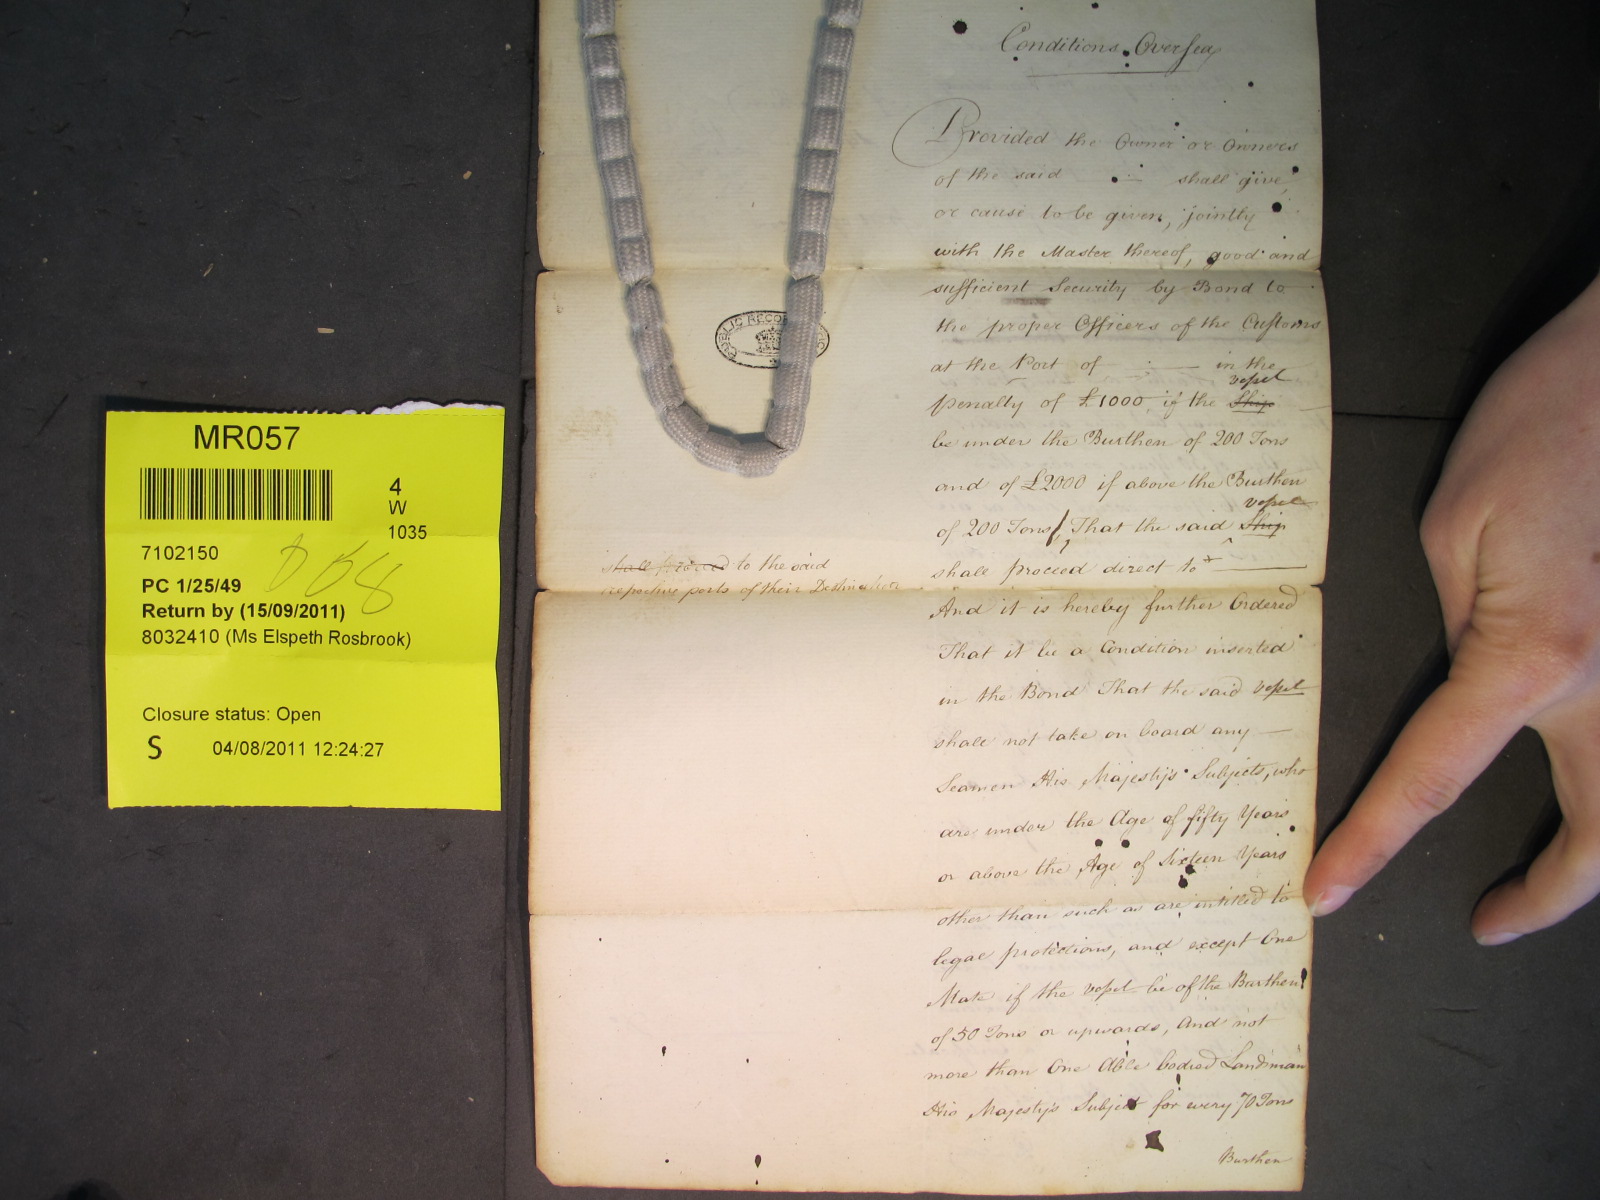 MR057
4
W
1035
7102150
PC 1/25/49
Return by (15/09/2011)
8032410 (Ms Elspeth Rosbrook)
Closure status: Open
S 04/08/2011 12:24:27
PUBLIC RECO
Conditions Oversea
Provided the Owner or Owners
of the said — shall give,
or cause to be given, jointly
with the Master thereof, good and
sufficient Security by Bond to
the proper Officers of the Customs
at the Port of — in the
vessel
penalty of £1000, if the Ship
be under the Burthen of 200 Tons
and of £2000 if above the Burthen
vessel
of 200 Tons, That the said Ship
shall proceed direct to x —
shall proceed to the said
respective ports of their Destination
And it is hereby further Ordered
That it be a Condition inserted
in the Bond That the said vessel
shall not take on board any —
Seamen His Majesty's Subjects, who
are under the Age of fifty Years
or above the Age of Sixteen Years
other than such as are intitled to
legal protections, and except One
Mate if the vessel be of the Burthen
of 50 Tons or upwards, And not
more than One Able bodied Landsman
His Majesty's Subject for every 70 Tons
Burthen